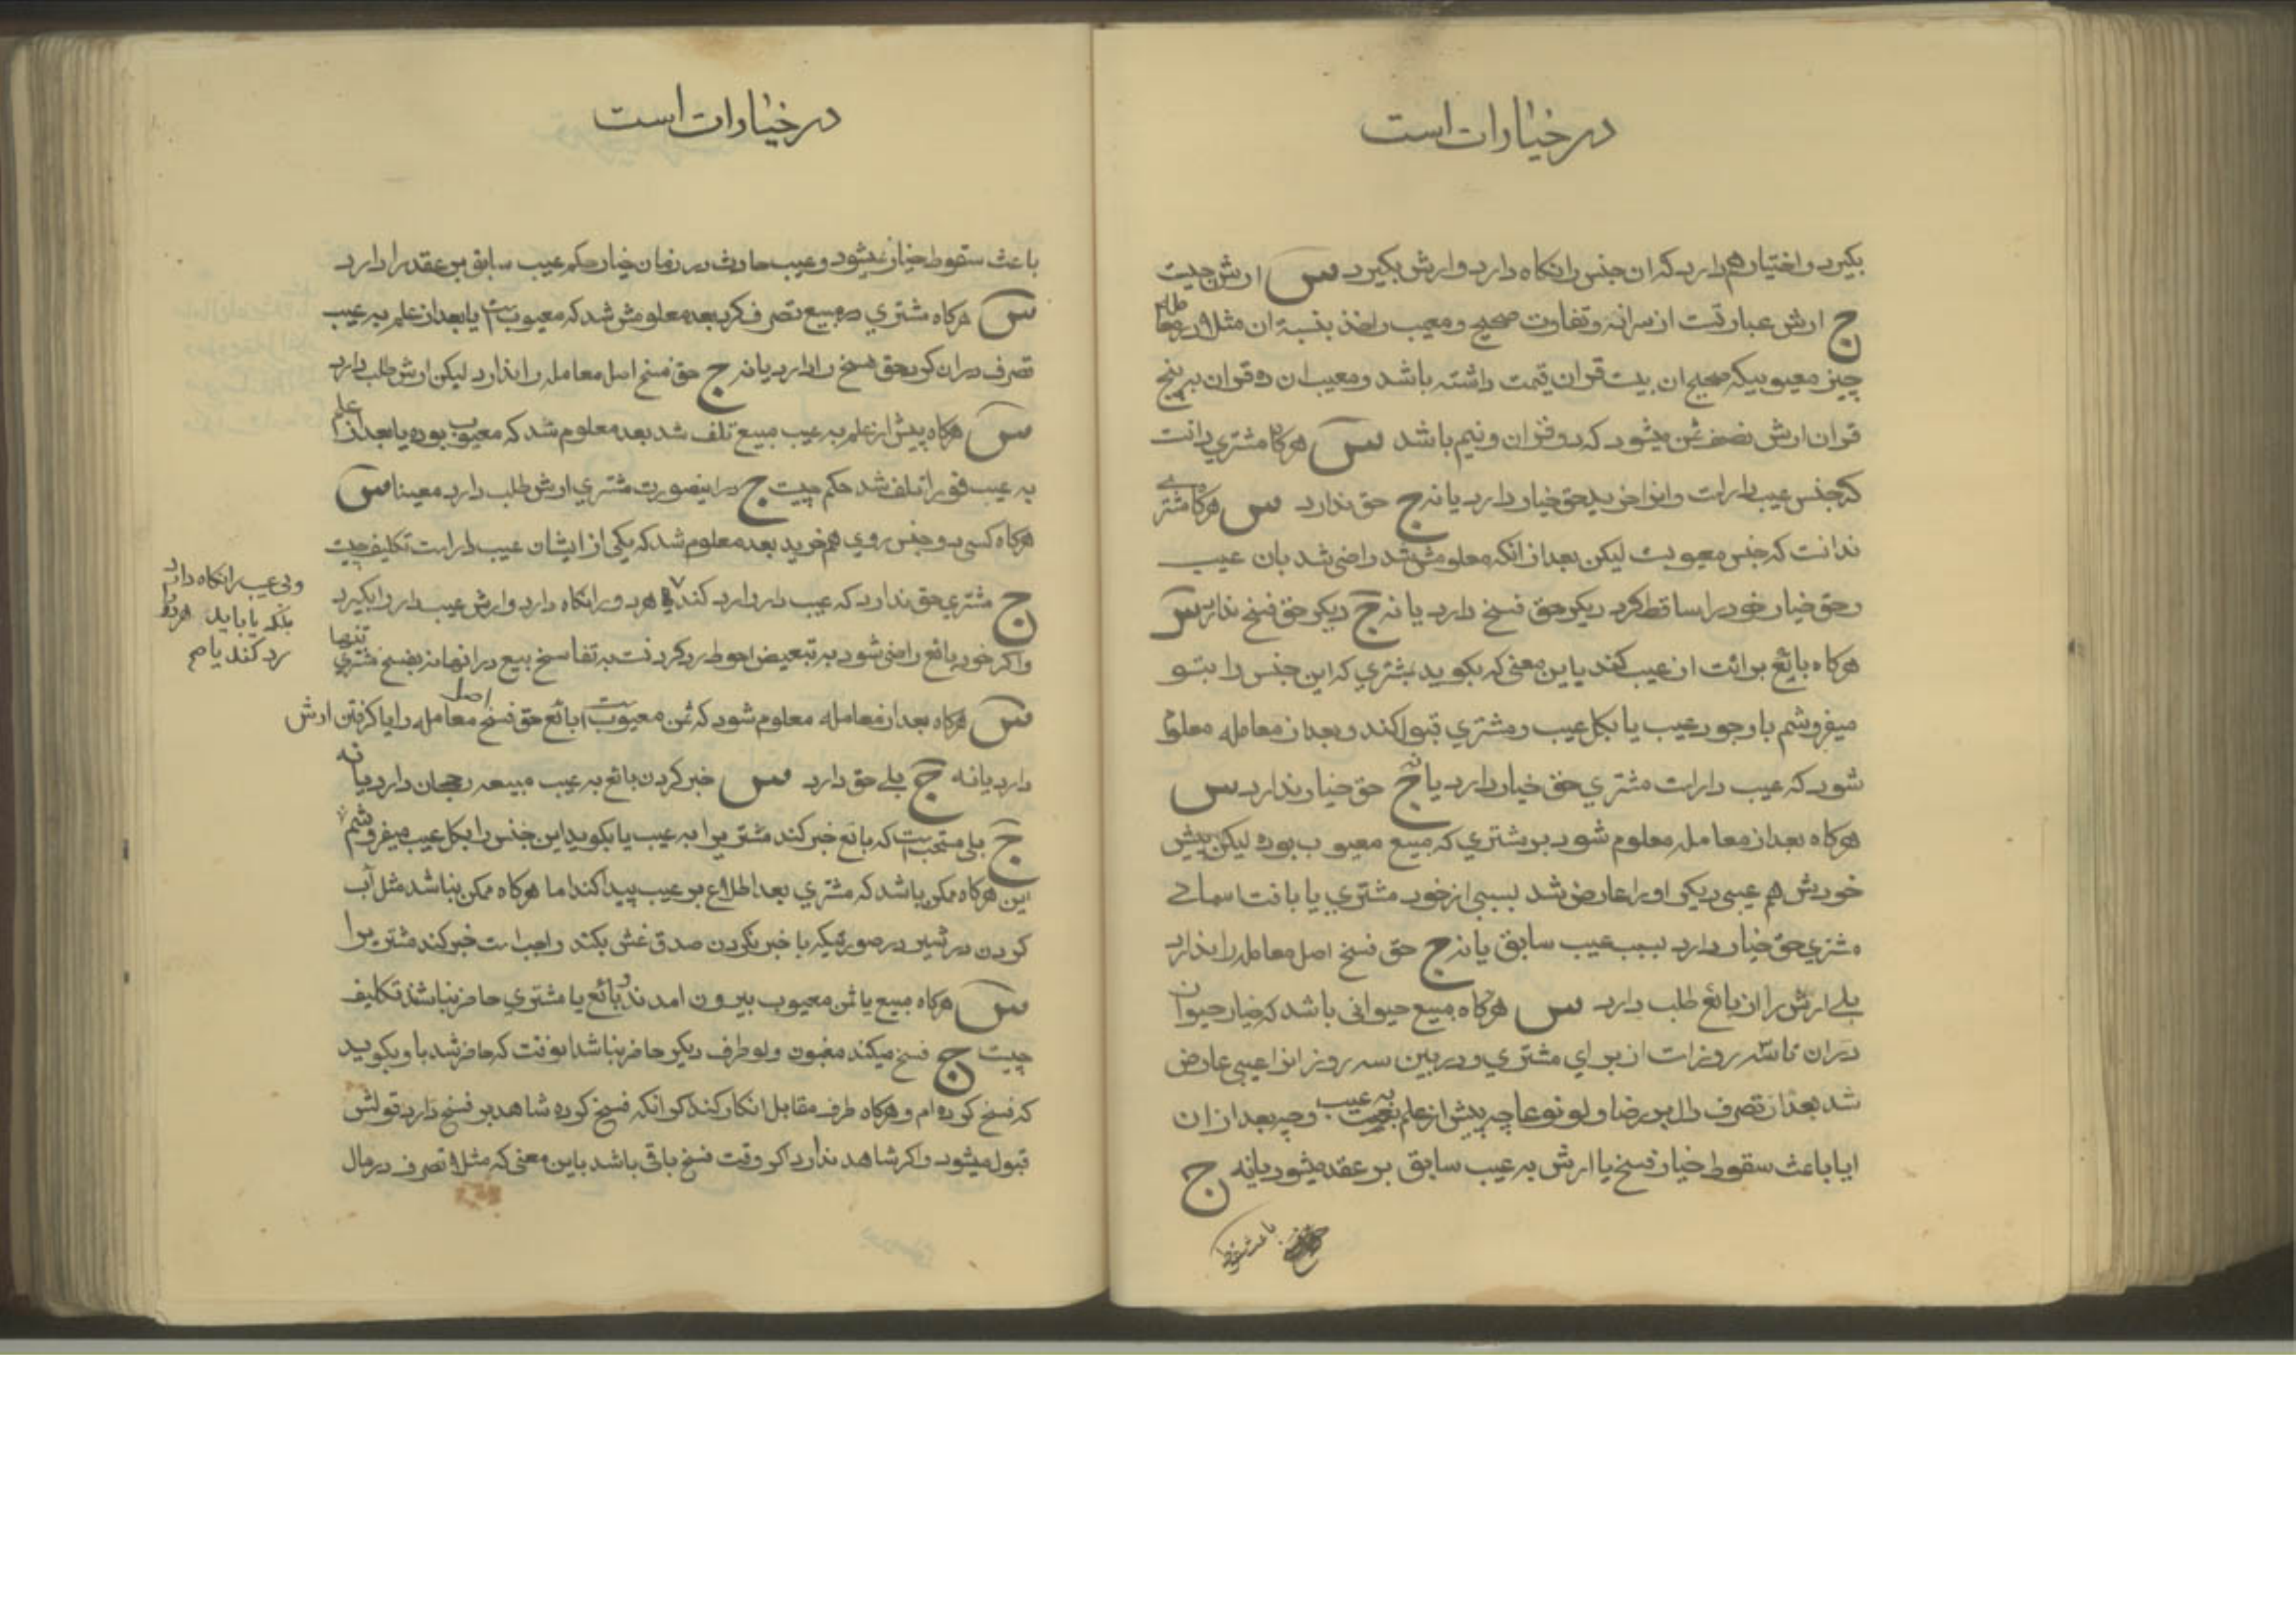 در خیارات است
بکیرد و اختیار هم دارد که ان جنس را نکاه دارد و ارش بکیرد س ارش چیست
ج ارش عبارتست از سرانه و تفاوت صحیح و معیب و اخذ بنسبة ان مثلا در معامله
چیز معیوبیکه صحیح ان بیست قران قیمت داشته باشد و معیب ان ده قران بر پنج
قران ارش نصف ثمن میشود که دو قران و نیم باشد س هرکاه مشتری دانست
که جنس عیب دار است و انرا خرید حق خیار دارد یا نه ج حق ندارد س هرکاه مشتری
ندانست که جنس معیوبست لیکن بعد از انکه معلومش شد راضی شد بان عیب
و حق خیار خود را ساقط کرد دیکر حق فسخ دارد یا نه ج دیکر حق فسخ ندارد س
هرکاه بایع برائت از عیب کند باین معنی که بکوید بمشتری که این جنس را بتو
میفروشم با وجود عیب یا بکل عیب و مشتری قبول کند و بعد از معامله معلوم
شود که عیب دار است مشتری حق خیار دارد یا نه ج حق خیار ندارد س
هرکاه بعد از معامله معلوم شود بر مشتری که مبیع معیوب بوده لیکن پیش
خودش هم عیبی دیکر او را عارض شد بسببی از خود مشتری یا بافت سمائے
مشتری حق خیار دارد بسبب عیب سابق یا نه ج حق فسخ اصل معامله را ندارد
بلے ارش را از بائع طلب دارد س هرکاه مبیع حیوانی باشد که خیار حیوان
در ان تا سه روز است از برای مشتری و در بین سه روز انرا عیبی عارض
شد بعد از تصرف دال بر رضا و لو نوعا چه پیش از علم به عیب و چه بعد از ان
ایا باعث سقوط خیار فسخ یا ارش به عیب سابق بر عقد میشود یا نه ج
باعث سقوط
در خیارات است
باعث سقوط خیار نمیشود و عیب حادث در زمان خیار حکم عیب سابق بر عقد را دارد
س هرکاه مشتری در مبیع تصرف کرد بعد معلومش شد که معیوبست یا بعد از علم به عیب
تصرف در ان کرد حق فسخ را دارد یا نه ج حق فسخ اصل معامله را ندارد لیکن ارش طلب دارد
س هرکاه پیش از علم به عیب مبیع تلف شد بعد معلوم شد که معیوب بوده یا بعد از علم
به عیب فورا تلف شد حکم چیست ج در اینصورت مشتری ارش طلب دارد معینا س
هرکاه کسی دو جنس روی هم خرید بعد معلوم شد که یکی از ایشان عیب دار است تکلیف چیست
ج مشتری حق ندارد که عیب دار را رد کند هر دو را نکاه دارد و ارش عیب دار را بکیرد
و بی عیب را نکاه دارد
بلکه یا باید هر دو
رد کند یا صح
و اکر خود بائع راضی شود به تبعیض احوط رد کردنست به تفاسخ بیع در انها نه بفسخ مشتری تنها
س هرکاه بعد از معامله معلوم شود که ثمن معیوبست ایا بائع حق فسخ اصل معامله را یا کرفتن ارش
دارد یا نه ج بلے حق دارد س خبر کردن بائع به عیب مبیعه رجحان دارد یا نه
ج بلی مستحب است که بائع خبر کند مشتریرا به عیب یا بکوید این جنس را بکل عیب میفروشم
این هرکاه ممکن باشد که مشتری بعد اطلاع بر عیب پیدا کند اما هرکاه ممکن نباشد مثل آب
کردن در شیر در صورتیکه با خبر نکردن صدق غش بکند واجب است خبر کند مشتریرا
س هرکاه مبیع یا ثمن معیوب بیرون امدند و بائع یا مشتری حاضر نباشند تکلیف
چیست ج فسخ میکند مغبون و لو طرف دیکر حاضر نباشد انوقت که حاضر شد باو بکوید
که فسخ کرده ام و هرکاه طرف مقابل انکار کند کر انکه فسخ کرده شاهد بر فسخ دارد قولش
قبول میشود و اکر شاهد ندارد اکر وقت فسخ باقی باشد باین معنی که مثلا تصرف در مال